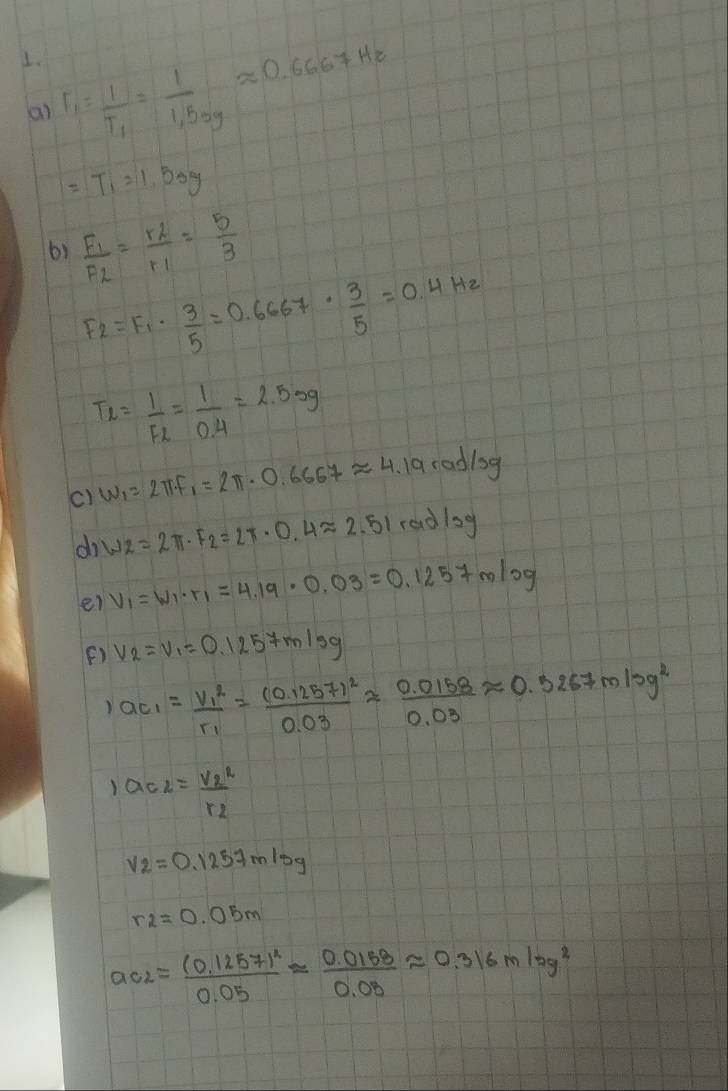 1.
a) F₁ = 1/T₁ = 1/1,5sg ≈ 0.6667 Hz
= T₁ = 1.5sg
b) F1/F2 = r2/r1 = 5/3
F2 = F₁ · 3/5 = 0.6667 · 3/5 = 0.4 Hz
T2 = 1/F2 = 1/0.4 = 2.5sg
c) W₁ = 2πF₁ = 2π · 0.6667 ≈ 4.19 rad/sg
d) W2 = 2π · F2 = 2π · 0.4 ≈ 2.51 rad/sg
e) V₁ = W₁ · r₁ = 4.19 · 0.03 = 0.1257 m/sg
F) V2 = V₁ = 0.1257 m/sg
) ac₁ = V₁²/r₁ = (0.1257)²/0.03 ≈ 0.0158/0.03 ≈ 0.5267 m/sg²
) ac2 = V2²/r2
V2 = 0.1257 m/sg
r2 = 0.05m
ac2 = (0.1257)²/0.05 ≈ 0.0158/0.05 ≈ 0.316 m/sg²